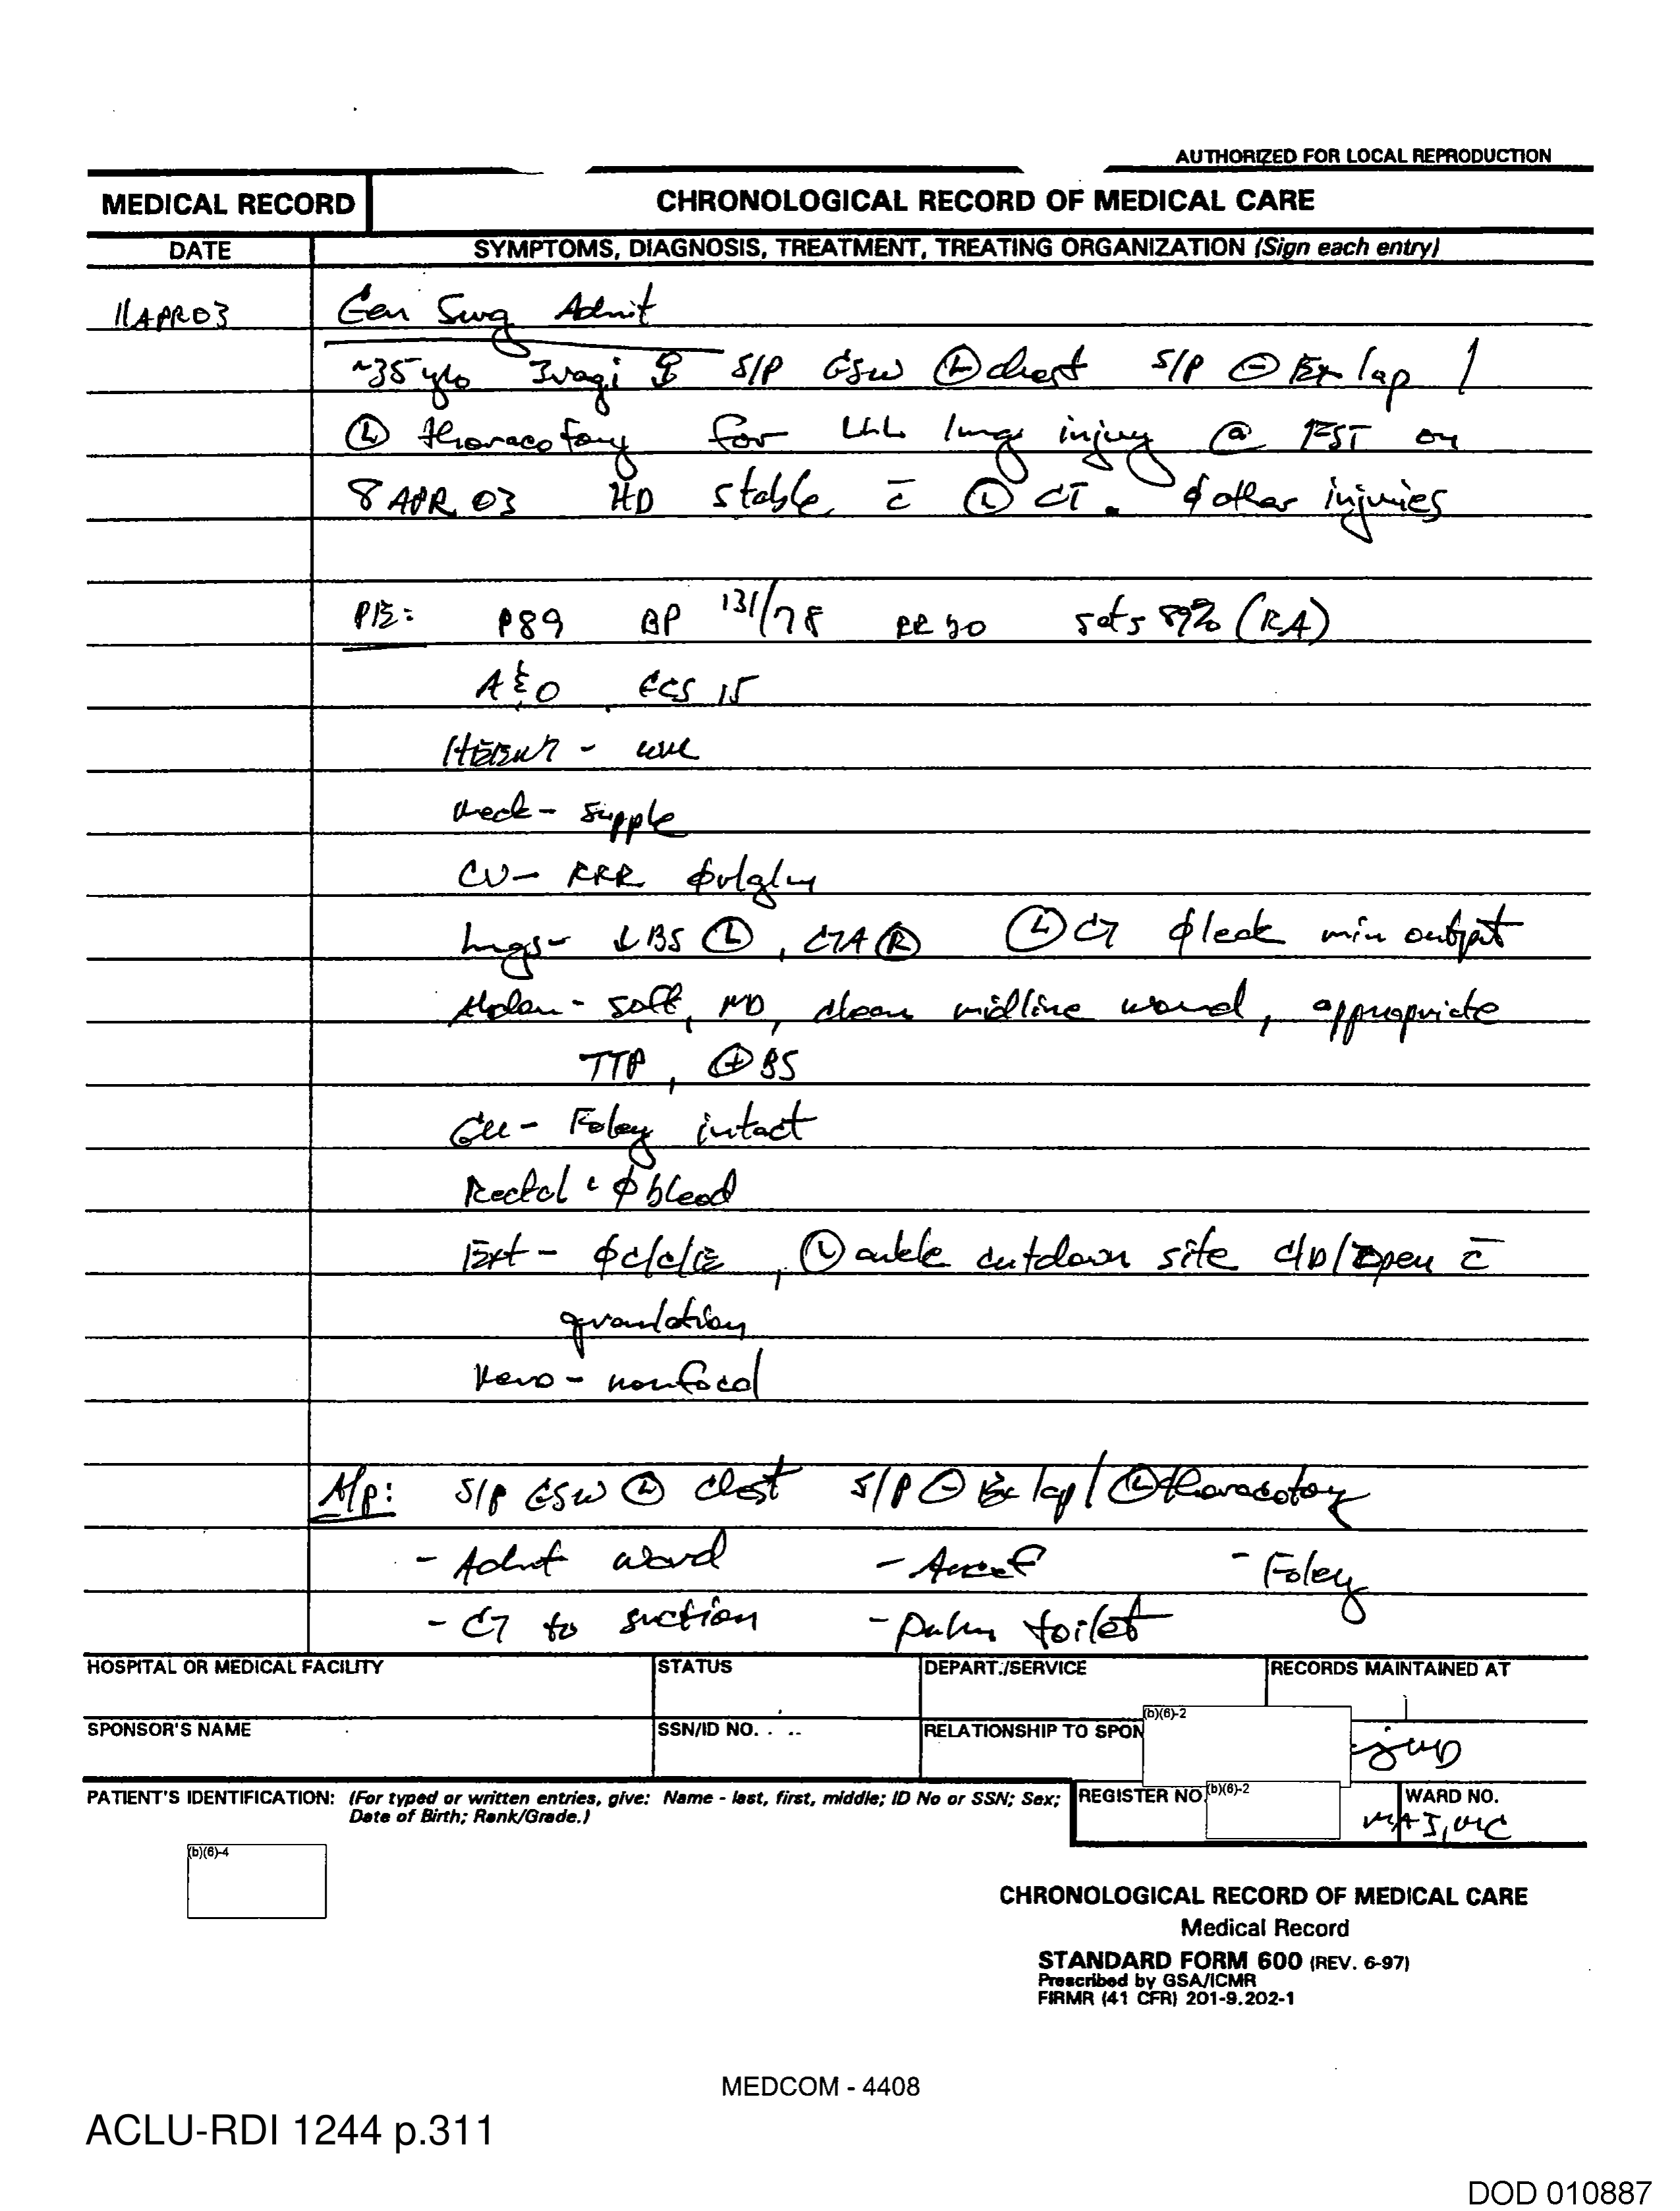 AUTHORIZED FOR LOCAL REPRODUCTION
MEDICAL RECORD
CHRONOLOGICAL RECORD OF MEDICAL CARE
DATE
SYMPTOMS, DIAGNOSIS, TREATMENT, TREATING ORGANIZATION (Sign each entry)
11 APR 03 Gen Surg Admit
~35 y/o Iraqi S/P GSW Ⓛ chest S/P ⊖ Ex lap /
Ⓛ thoracotomy for LLL lung injury @ FST on
8 APR 03 HD stable c̄ Ⓛ CT. ϕ other injuries
PE: P89 BP 131/78 RR 20 sats 89% (RA)
A&O, GCS 15
HEENT - WNL
Neck - supple
CV - RRR ϕ
Lungs - ↓BS Ⓛ, CTA Ⓡ Ⓛ CT ϕ leak min output
Abdom - soft, ND, clean midline wound, appropriate
TTP, ⊕ BS
GU - Foley intact
Rectal : ϕ blood
Ext - ϕ c/c/E, Ⓛ ankle cutdown site c/D/open c̄
granulation
Neuro - nonfocal
A/P: S/P GSW Ⓛ chest S/P ⊖ Ex lap / Ⓛ thoracotomy
- Admit ward - Ancef - Foley
- CT to suction - pulm toilet
HOSPITAL OR MEDICAL FACILITY
STATUS
DEPART./SERVICE
RECORDS MAINTAINED AT
SPONSOR'S NAME
SSN/ID NO.
RELATIONSHIP TO SPON
(b)(6)-2
PATIENT'S IDENTIFICATION: (For typed or written entries, give: Name - last, first, middle; ID No or SSN; Sex;
Date of Birth; Rank/Grade.)
REGISTER NO
(b)(6)-2
WARD NO.
MAJ, MC
(b)(6)-4
CHRONOLOGICAL RECORD OF MEDICAL CARE
Medical Record
STANDARD FORM 600 (REV. 6-97)
Prescribed by GSA/ICMR
FIRMR (41 CFR) 201-9.202-1
MEDCOM - 4408
ACLU-RDI 1244 p.311
DOD 010887